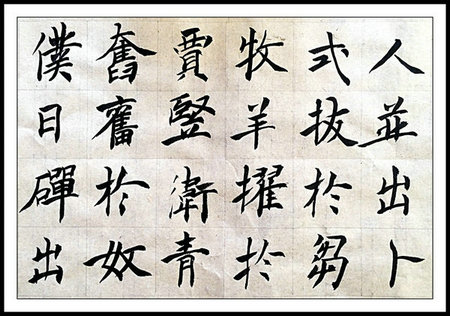 人並出卜
式拔於芻
牧羊擢於
賈豎衛青
奮奮於奴
僕日磾出